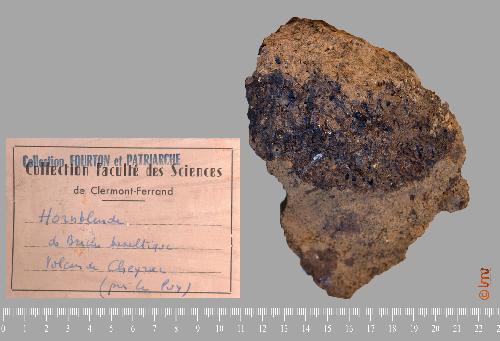 Collection FOURTON et PATRIARCHE
Collection Faculté des Sciences
de Clermont-Ferrand
Hornblende
de Brèche basaltique
Volcan de Cheyrac
(près le Puy)
0 1 2 3 4 5 6 7 8 9 10 11 12 13 14 15 16 17 18 19 20 21 22